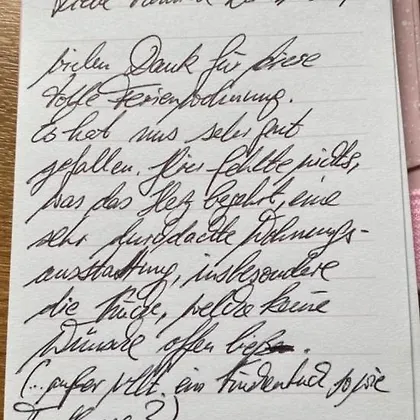 Liebe
vielen Dank für diese
tolle Ferienwohnung.
Es hat uns sehr gut
gefallen. Hier fehlte nichts,
was das Herz begehrt, eine
sehr durchdachte Wohnungs-
ausstattung, insbesondere
die Küche, welche keine
Wünsche offen
(.. außer evtl. ein